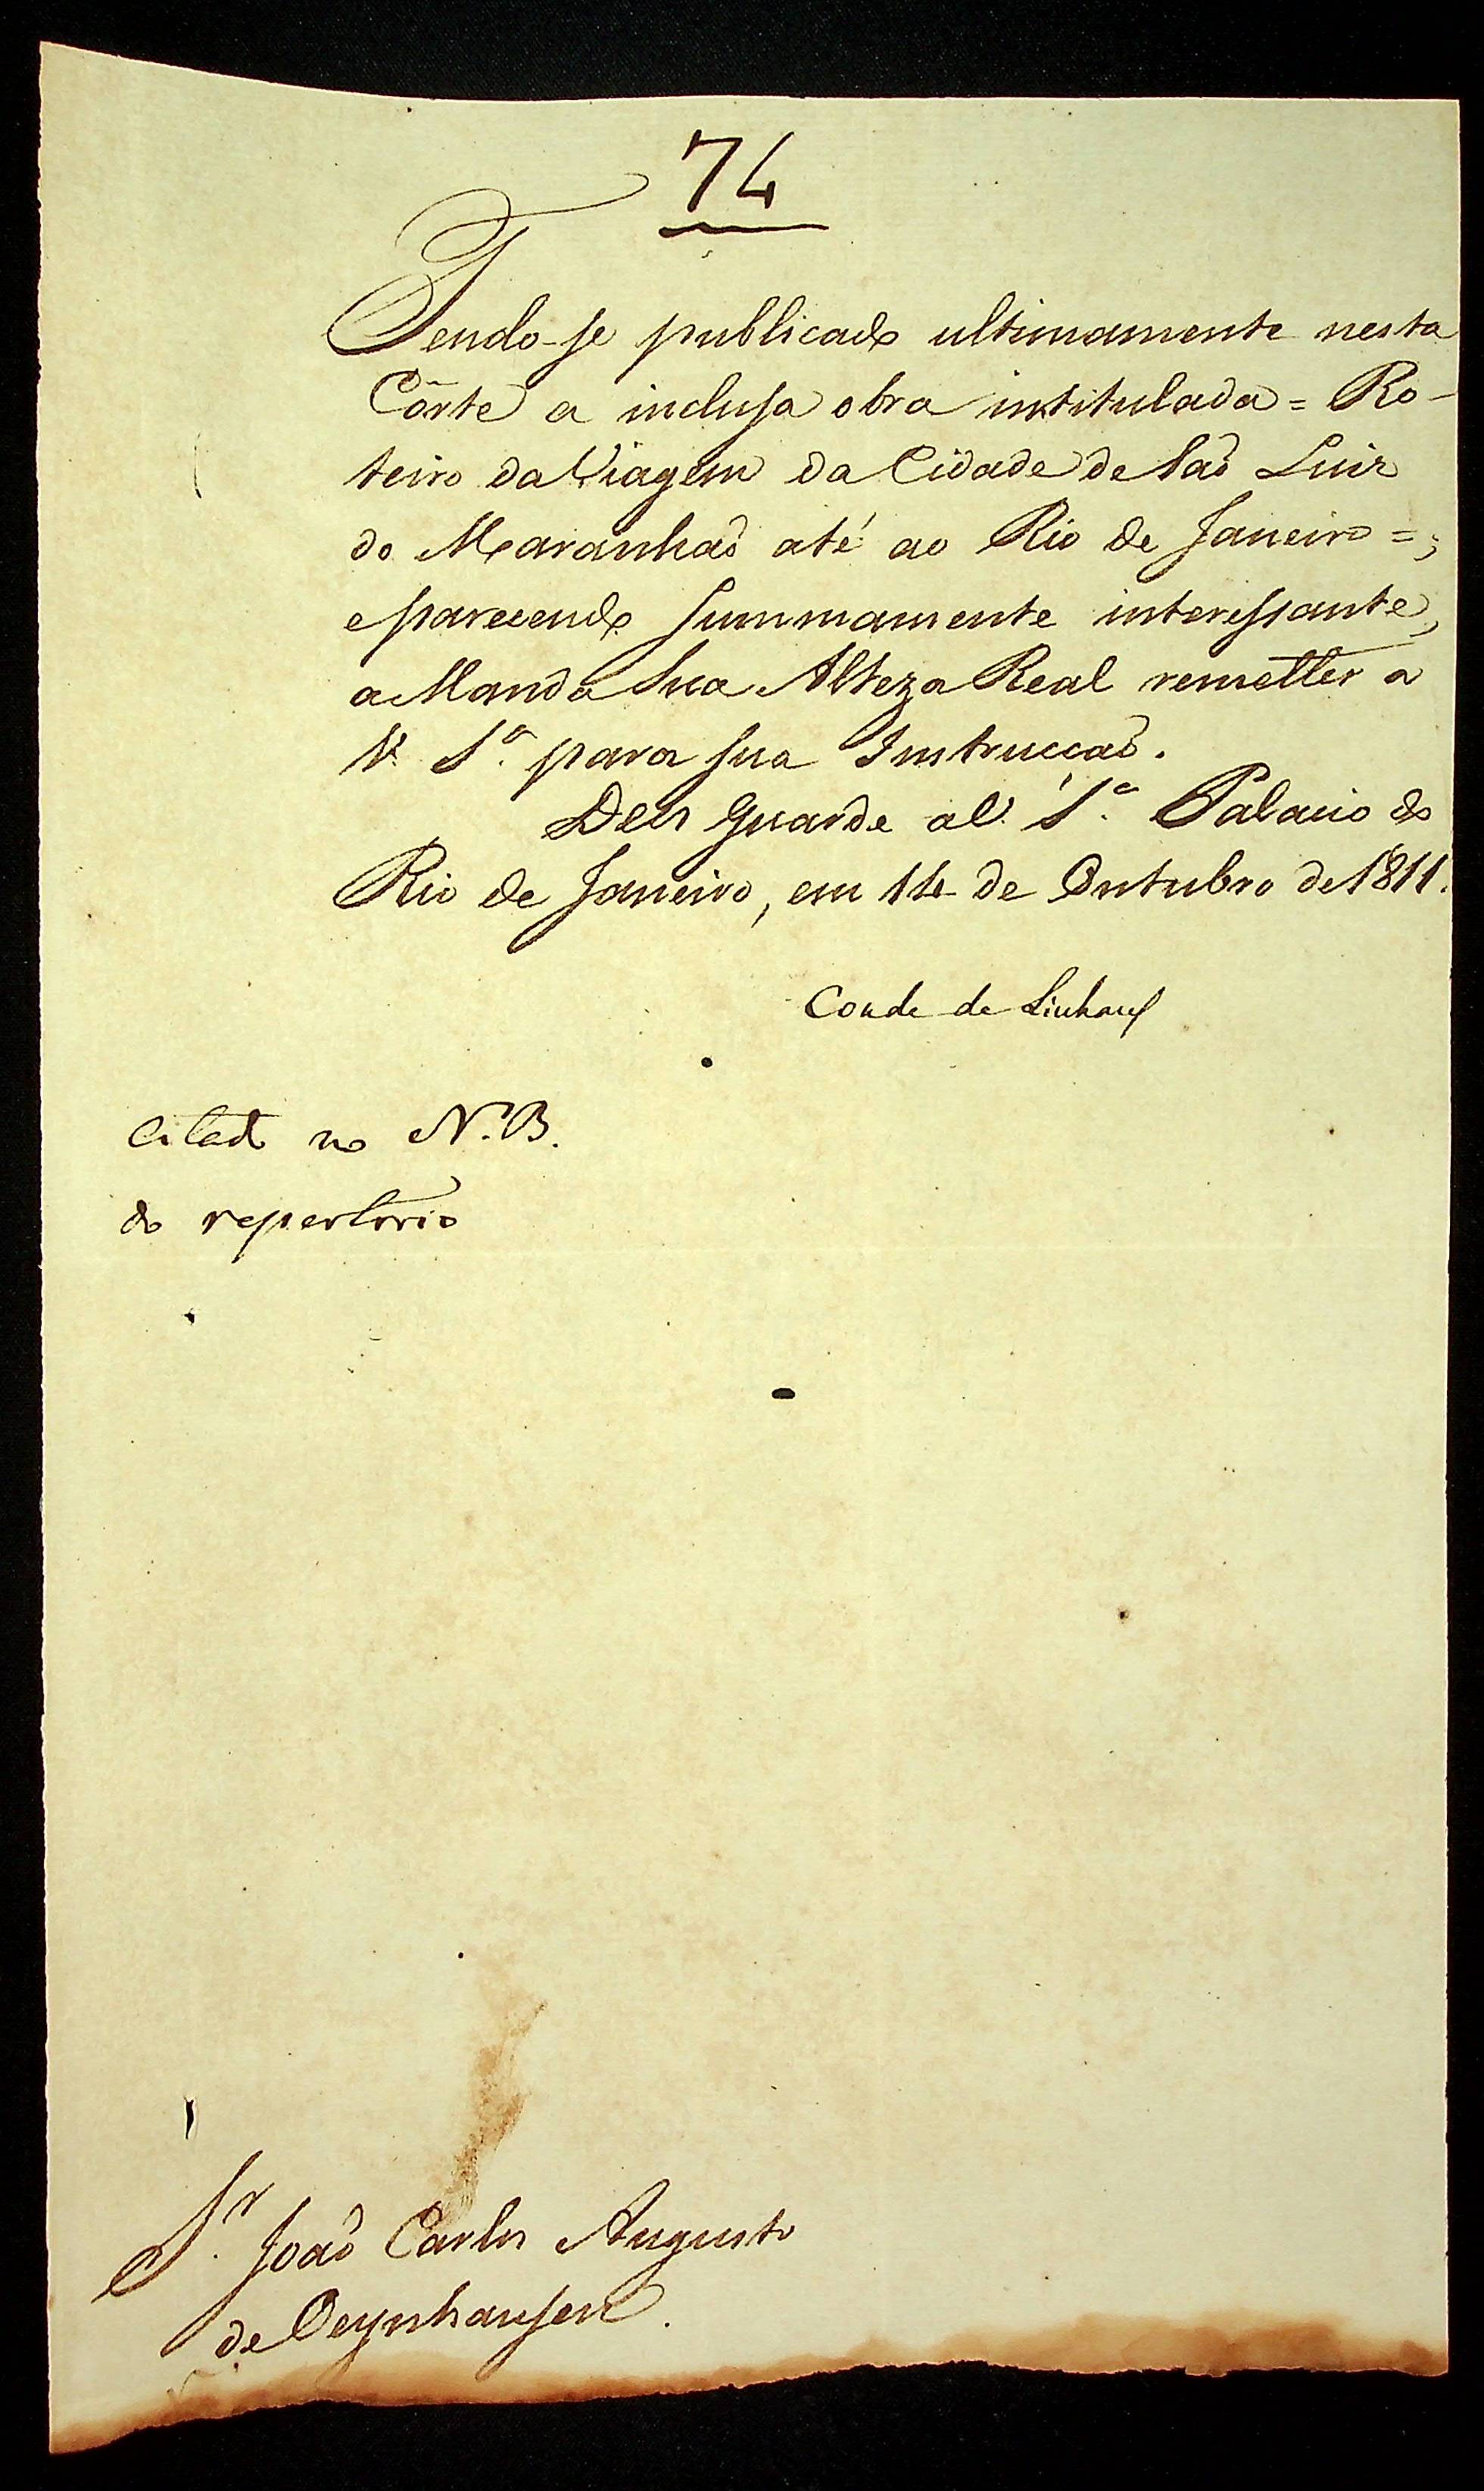 74
Tendo-se publicado ultimamente nesta
Côrte a inclusa obra intitulada = Ro-
teiro da Viagem da Cidade de São Luiz
do Maranhaõ até ao Rio de Janeiro = ;
e parecendo summamente interessante,
a Manda Sua Alteza Real remetter a
V. S.ª para sua Instrucçaõ.
Deos Guarde a V. S.ª Palacio do
Rio de Janeiro, em 14 de Outubro de 1811.
Conde de Linhares
Citado no N.B.
do repertorio
S.r Joaõ Carlos Augusto
de Oeynhausen.